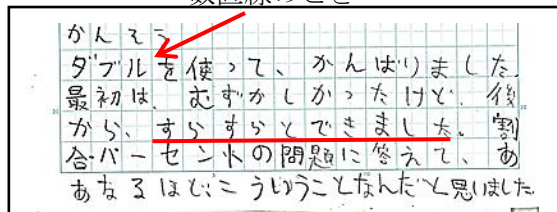 数直線のこと
かんそう
ダブルを使って、かんばりました。
最初は、むずかしかったけど、後
から、すらすらとできました。割
合・パーセントの問題に答えて、あ
あなるほど、こういうことなんだと思いました。